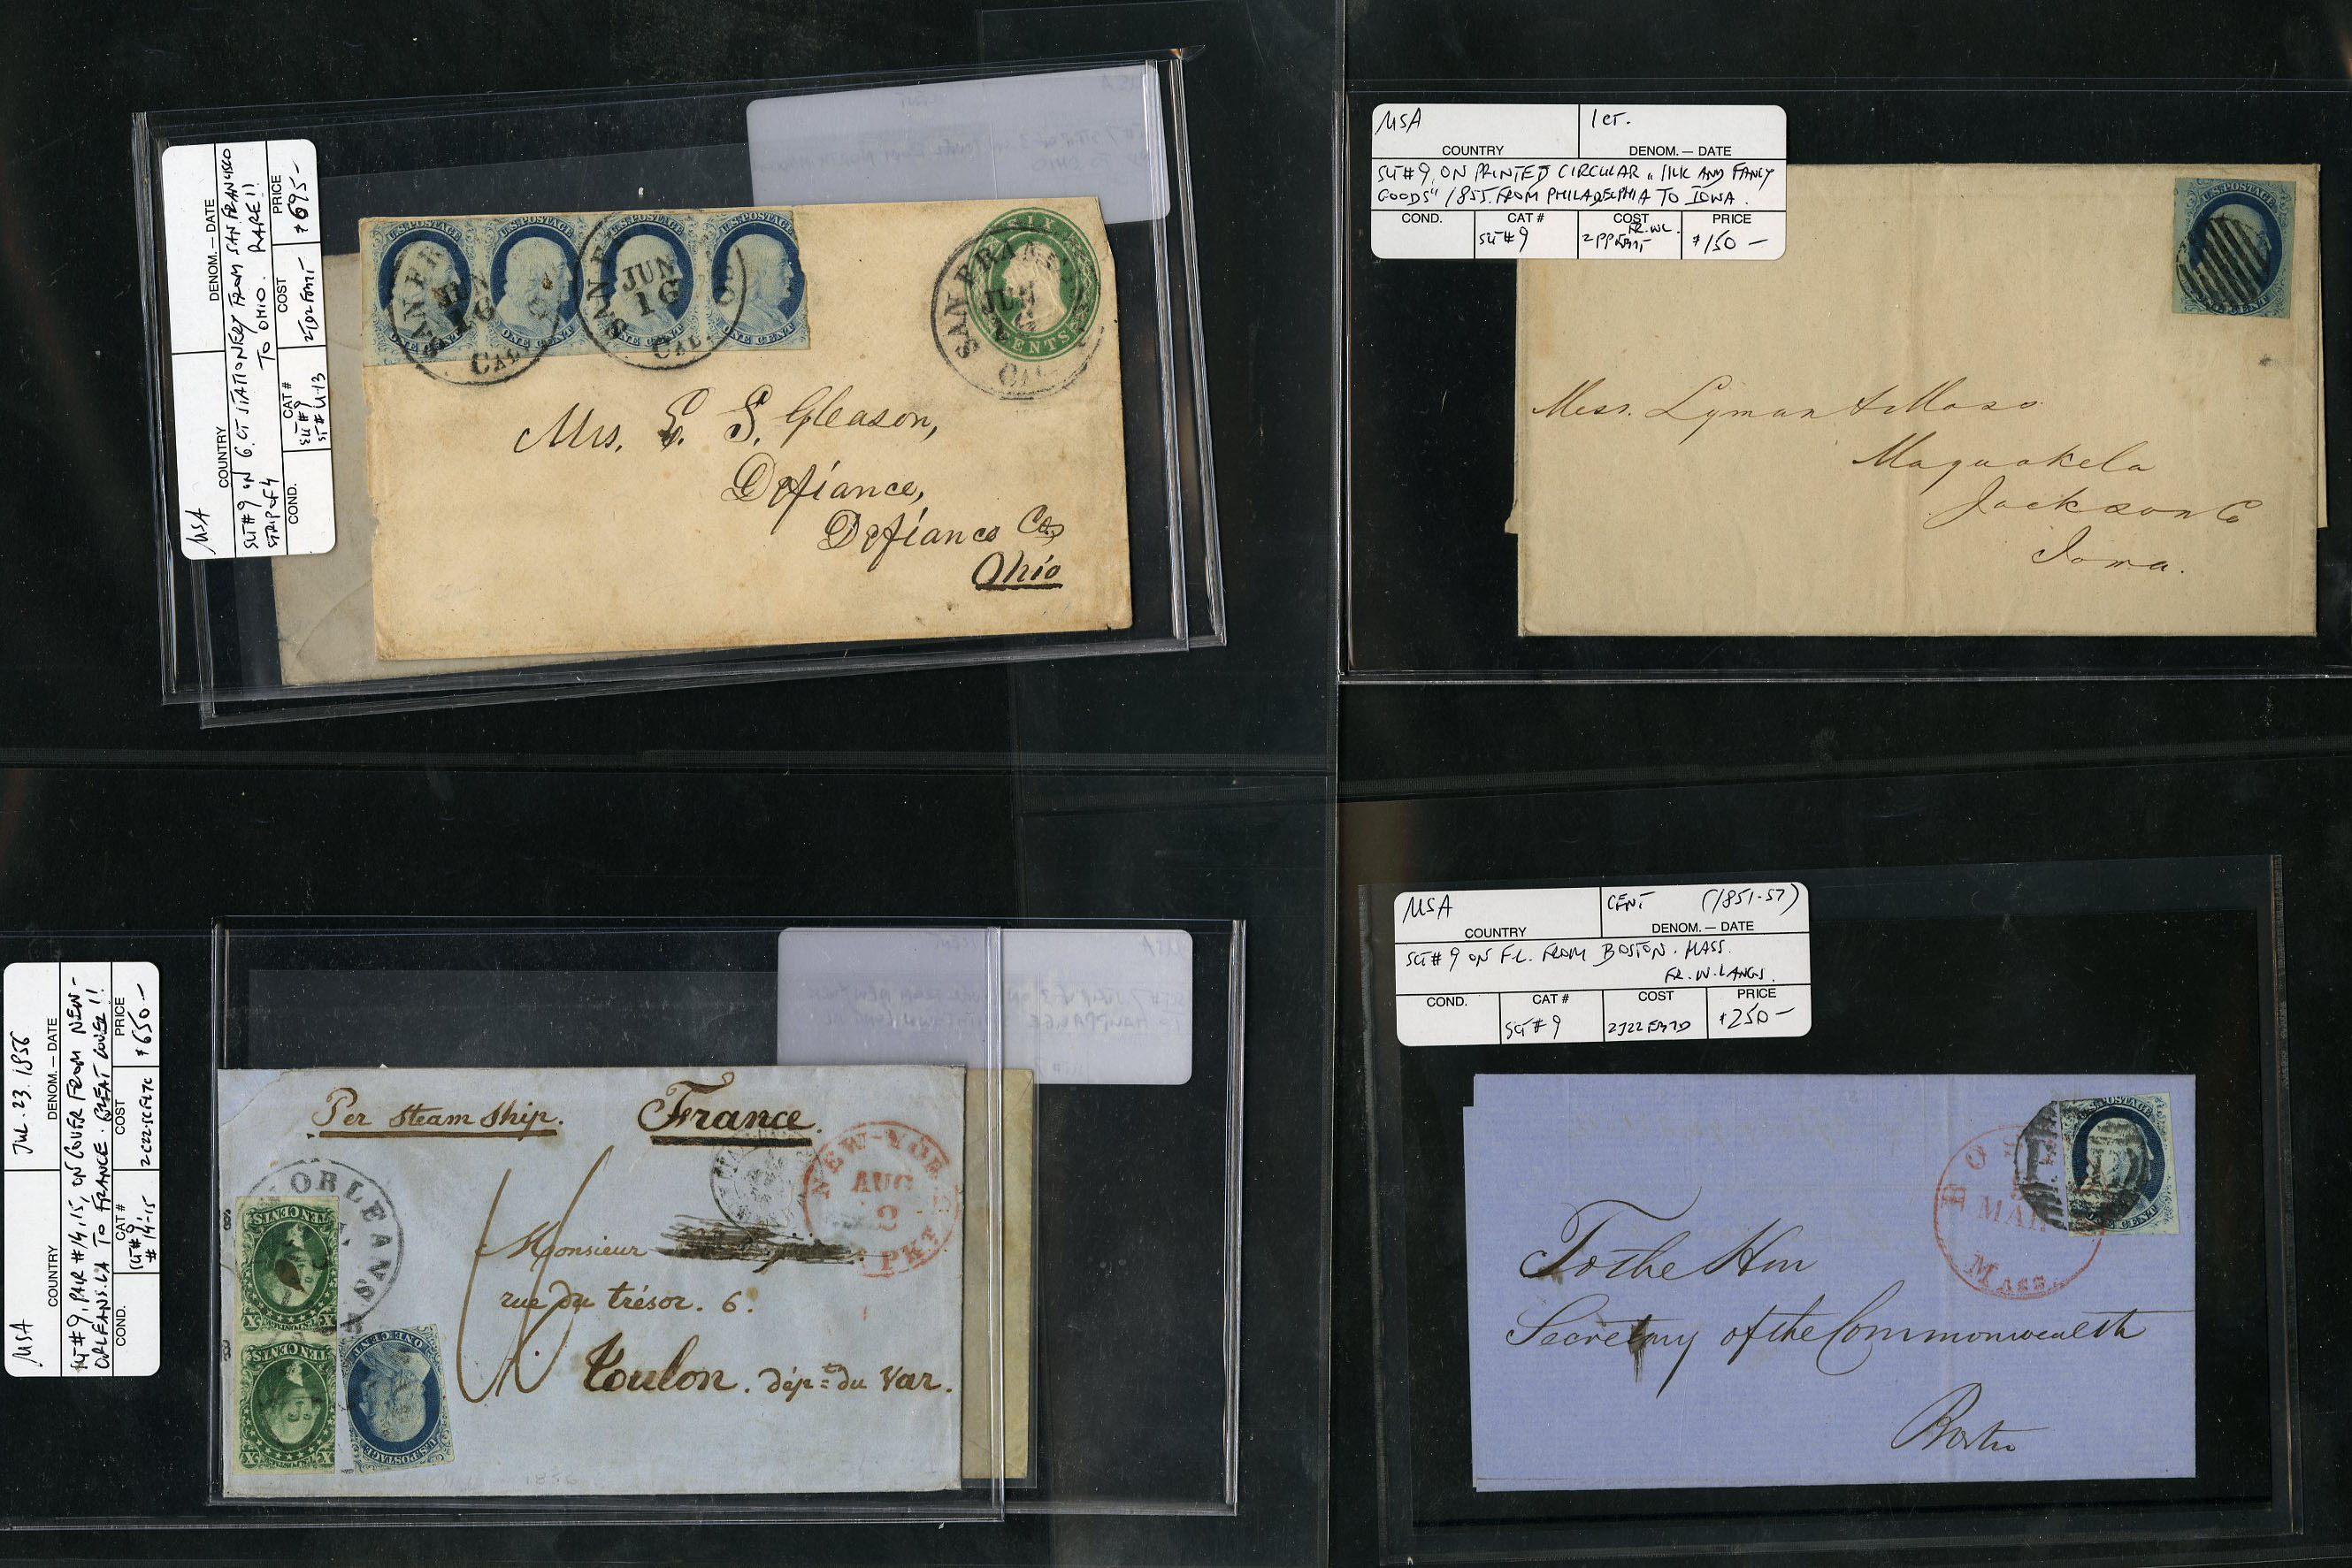 USA
COUNTRY
DENOM. — DATE
SCT # 9 ON 6 CT STATIONERY FROM SAN FRANCISCO
STRIP OF 4 TO OHIO. RARE!!
COND.
CAT #
COST
PRICE
SCT # 9
ST # U-13
$695-
U.S. POSTAGE
U.S. POSTAGE
U.S. POSTAGE
U.S. POSTAGE
ONE CENT
ONE CENT
ONE CENT
ONE CENT
SAN FR
16
CAL
SAN FR
JUN
16
CAL.
SIX
CENTS
SAN FRAN
JUN
CAL
Mrs. E. S. Gleason,
Defiance,
Defiance Co,
Ohio
USA
1 CT.
COUNTRY
DENOM. — DATE
SCT # 9, ON PRINTED CIRCULAR "SILK AND FANCY
GOODS" 1855. FROM PHILADELPHIA TO IOWA.
COND.
CAT #
COST
PRICE
SCT # 9
FR. WL.
$150-
U.S. POSTAGE
ONE CENT
Mess. Lyman & Moss
Maquoketa
Jackson Co
Iowa.
USA
JUL. 23. 1856
COUNTRY
DENOM. — DATE
SCT # 9, PAIR # 14, 15, ON COVER FROM NEW-
ORLEANS. LA TO FRANCE. GREAT COVER!!
COND.
CAT #
COST
PRICE
SCT # 9,
# 14-15
$650-
Per steam ship. France.
ORLEANS
NEW-YORK
AUG
2
PKT
TEN CENTS
TEN CENTS
U.S. POSTAGE
ONE CENT
Monsieur
rue du trésor. 6.
Toulon. dép=tn du Var.
1856
USA
CENT (1851-57)
COUNTRY
DENOM. — DATE
SCT # 9 ON F.L. FROM BOSTON. MASS.
FR. W. LANGS.
COND.
CAT #
COST
PRICE
SCT # 9
$250-
U.S. POSTAGE
ONE CENT
BOS
MAR
MASS.
To the Hon
Secretary of the Commonwealth
Boston